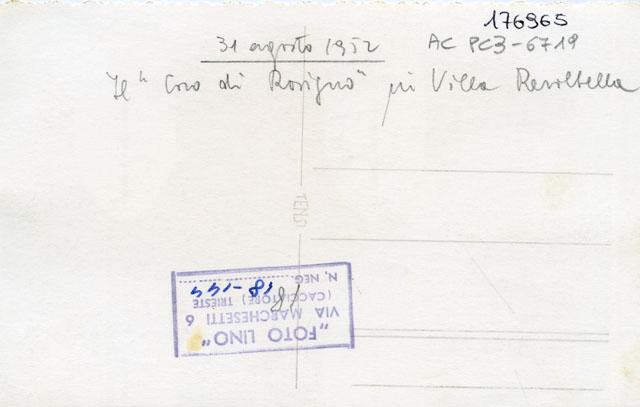 176965
31 agosto 1952
AC PC3-6719
Il "Coro di Rovigno" in Villa Revoltella
TENSI
"FOTO LINO"
VIA MARCHESETTI 6
(CACCIATORE) TRIESTE
N. NEG. 18-144
81